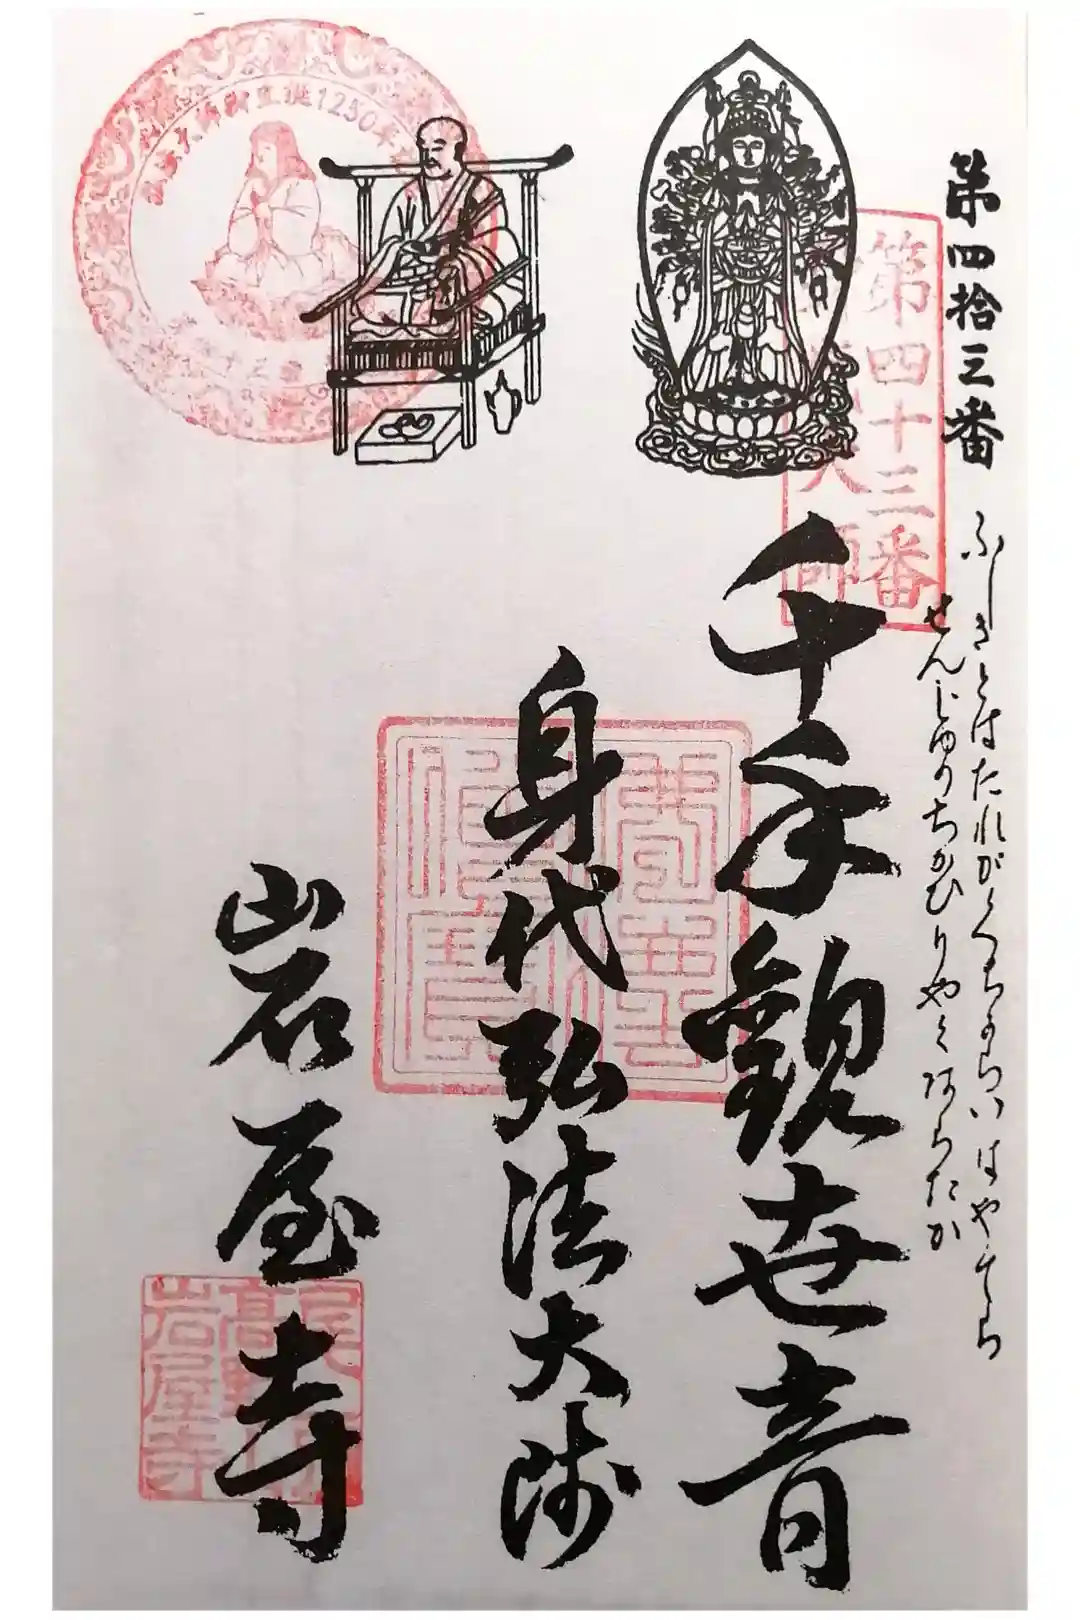 第四拾三番
ふしぎとはたれがくちならいはやてら
せんじゆのちかひりやくあらたか
第四十三番
大師
千手観世音
身代弘法大師
岩屋寺
1250年
尾
高野山
岩屋寺